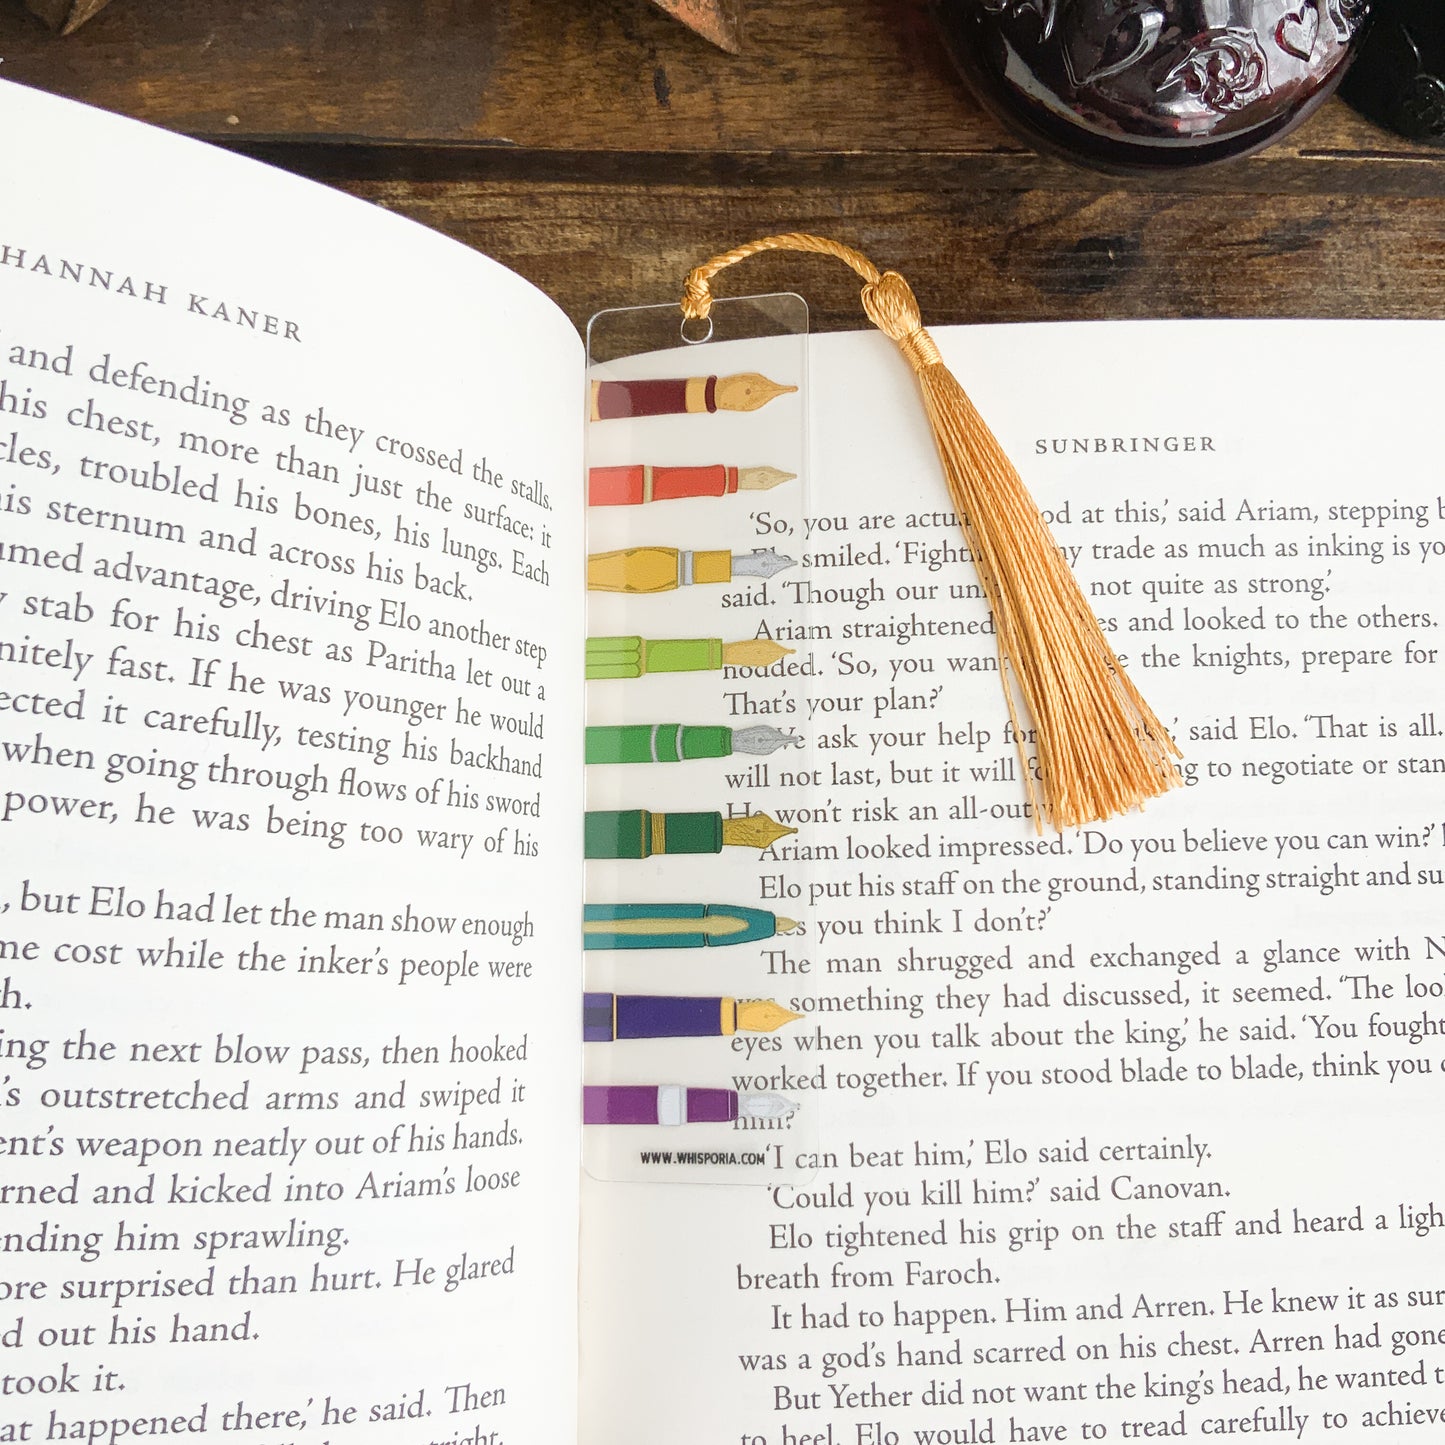 HANNAH KANER
and defending as they crossed the stalls.
his chest, more than just the surface: it
troubled his bones, his lungs. Each
sternum and across his back.
advantage, driving Elo another step
stab for his chest as Paritha let out a
fast. If he was younger he would
it carefully, testing his backhand
when going through flows of his sword
power, he was being too wary of his
but Elo had let the man show enough
cost while the inker's people were
the next blow pass, then hooked
outstretched arms and swiped it
weapon neatly out of his hands.
and kicked into Ariam's loose
him sprawling.
surprised than hurt. He glared
out his hand.
took it.
happened there,' he said. Then
WWW.WHISPORIA.COM
SUNBRINGER
'So, you are at this,' said Ariam, stepping
smiled. trade as much as inking is
said. 'Though our not quite as strong.'
Ariam straightened and looked to the others.
nodded. 'So, you the knights, prepare for
That's your plan?'
ask your help said Elo. 'That is all.
will not last, but it will to negotiate or
He won't risk an all-out
Ariam looked impressed. 'Do you believe you can win?'
Elo put his staff on the ground, standing straight and
you think I don't?'
The man shrugged and exchanged a glance with
something they had discussed, it seemed. 'The
eyes when you talk about the king,' he said. 'You fought
worked together. If you stood blade to blade, think you
him?'
'I can beat him,' Elo said certainly.
'Could you kill him?' said Canovan.
Elo tightened his grip on the staff and heard a
breath from Faroch.
It had to happen. Him and Arren. He knew it as
was a god's hand scarred on his chest. Arren had
But Yether did not want the king's head, he wanted
to heel. Elo would have to tread carefully to